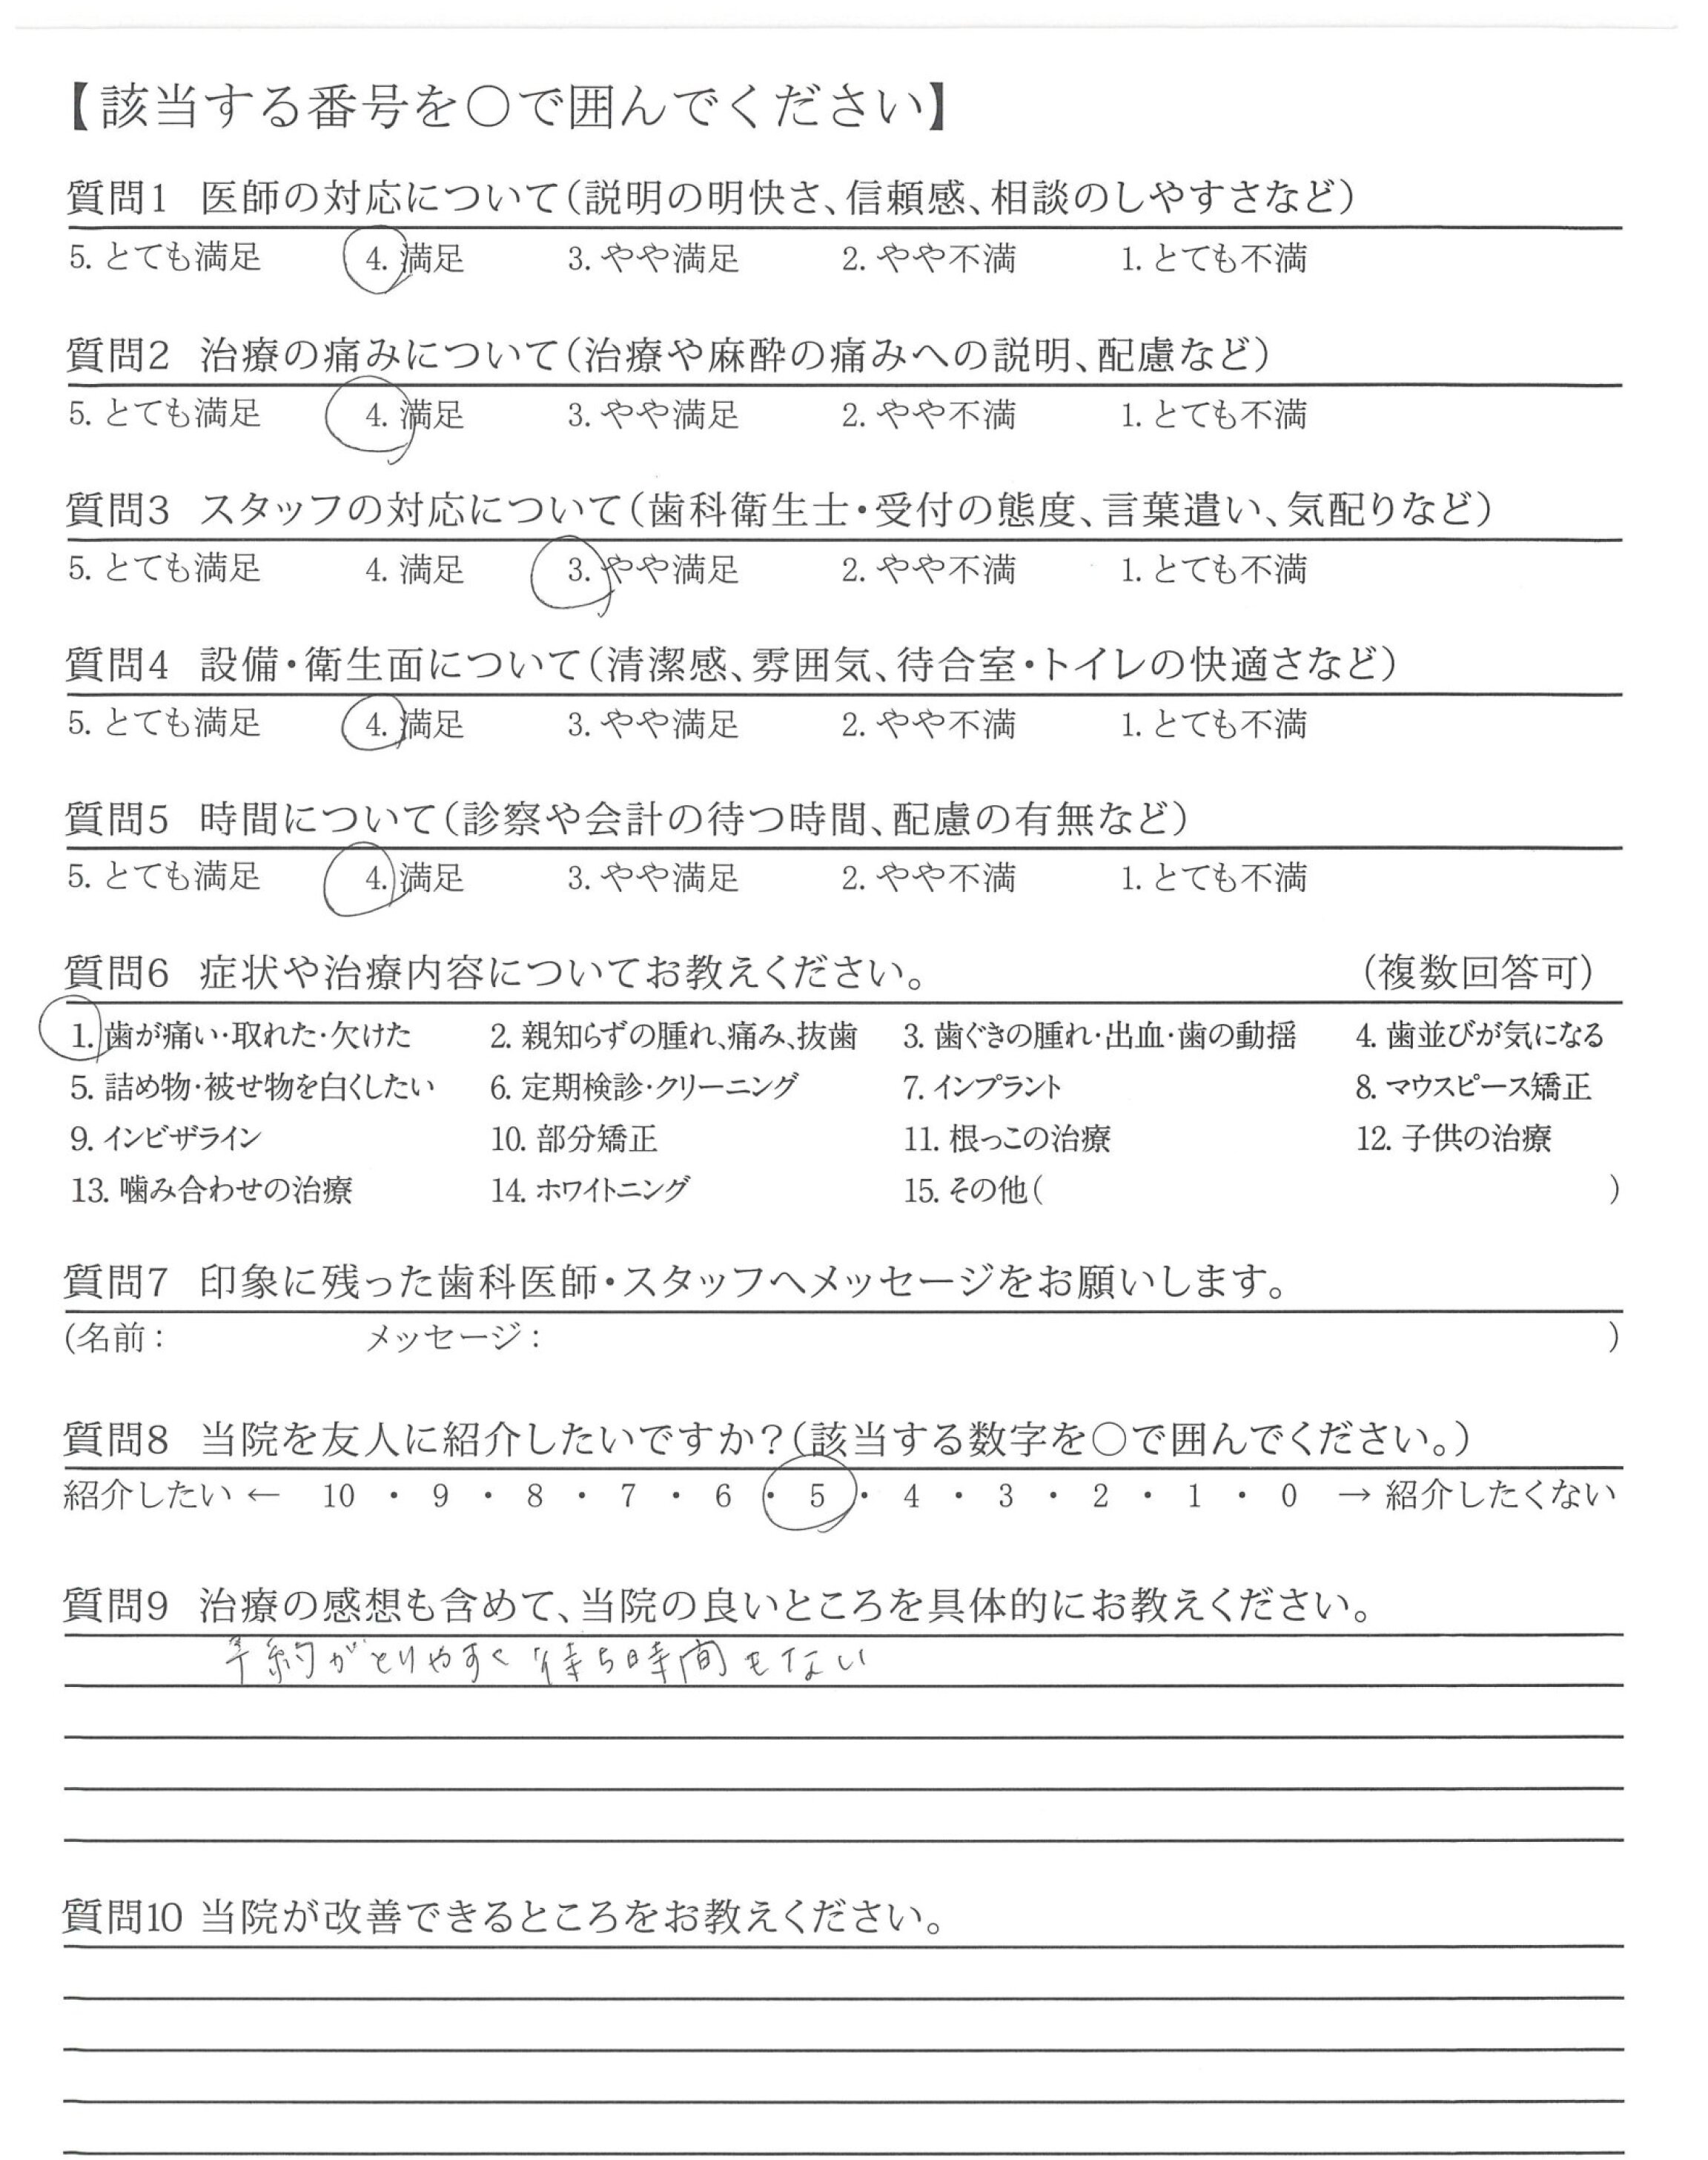 【該当する番号を○で囲んでください】
質問1 医師の対応について（説明の明快さ、信頼感、相談のしやすさなど）
5. とても満足 4. 満足 3. やや満足 2. やや不満 1. とても不満
質問2 治療の痛みについて（治療や麻酔の痛みへの説明、配慮など）
5. とても満足 4. 満足 3. やや満足 2. やや不満 1. とても不満
質問3 スタッフの対応について（歯科衛生士・受付の態度、言葉遣い、気配りなど）
5. とても満足 4. 満足 3. やや満足 2. やや不満 1. とても不満
質問4 設備・衛生面について（清潔感、雰囲気、待合室・トイレの快適さなど）
5. とても満足 4. 満足 3. やや満足 2. やや不満 1. とても不満
質問5 時間について（診察や会計の待つ時間、配慮の有無など）
5. とても満足 4. 満足 3. やや満足 2. やや不満 1. とても不満
質問6 症状や治療内容についてお教えください。 （複数回答可）
1. 歯が痛い・取れた・欠けた 2. 親知らずの腫れ、痛み、抜歯 3. 歯ぐきの腫れ・出血・歯の動揺 4. 歯並びが気になる
5. 詰め物・被せ物を白くしたい 6. 定期検診・クリーニング 7. インプラント 8. マウスピース矯正
9. インビザライン 10. 部分矯正 11. 根っこの治療 12. 子供の治療
13. 噛み合わせの治療 14. ホワイトニング 15. その他（ ）
質問7 印象に残った歯科医師・スタッフへメッセージをお願いします。
（名前： メッセージ： ）
質問8 当院を友人に紹介したいですか？（該当する数字を○で囲んでください。）
紹介したい ← 10 ・ 9 ・ 8 ・ 7 ・ 6 ・ 5 ・ 4 ・ 3 ・ 2 ・ 1 ・ 0 → 紹介したくない
質問9 治療の感想も含めて、当院の良いところを具体的にお教えください。
予約がとりやすく待ち時間もない
質問10 当院が改善できるところをお教えください。